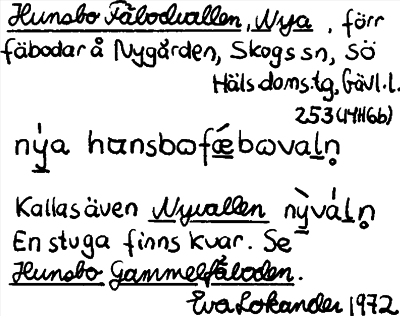 Hunsbo Fäbodvallen, Nya, förr
fäbodar å Nygården, Skogs sn, sö
Häls doms.tg, Gävl. l.
253 (14H6b)
nýa hɑnsbωfǽbωvaln̥
Kallas även Nyvallen nỳváln̥
En stuga finns kvar. Se
Hunsbo Gammelfäboden.
Eva Lokander 1972